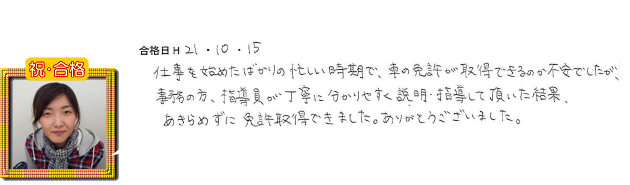 合格日 H 21 ・ 10 ・ 15
祝・合格
仕事を始めたばかりの忙しい時期で、車の免許が取得できるのか不安でしたが、
事務の方、指導員が丁寧に分かりやすく説明・指導して頂いた結果、
あきらめずに免許取得できました。ありがとうございました。